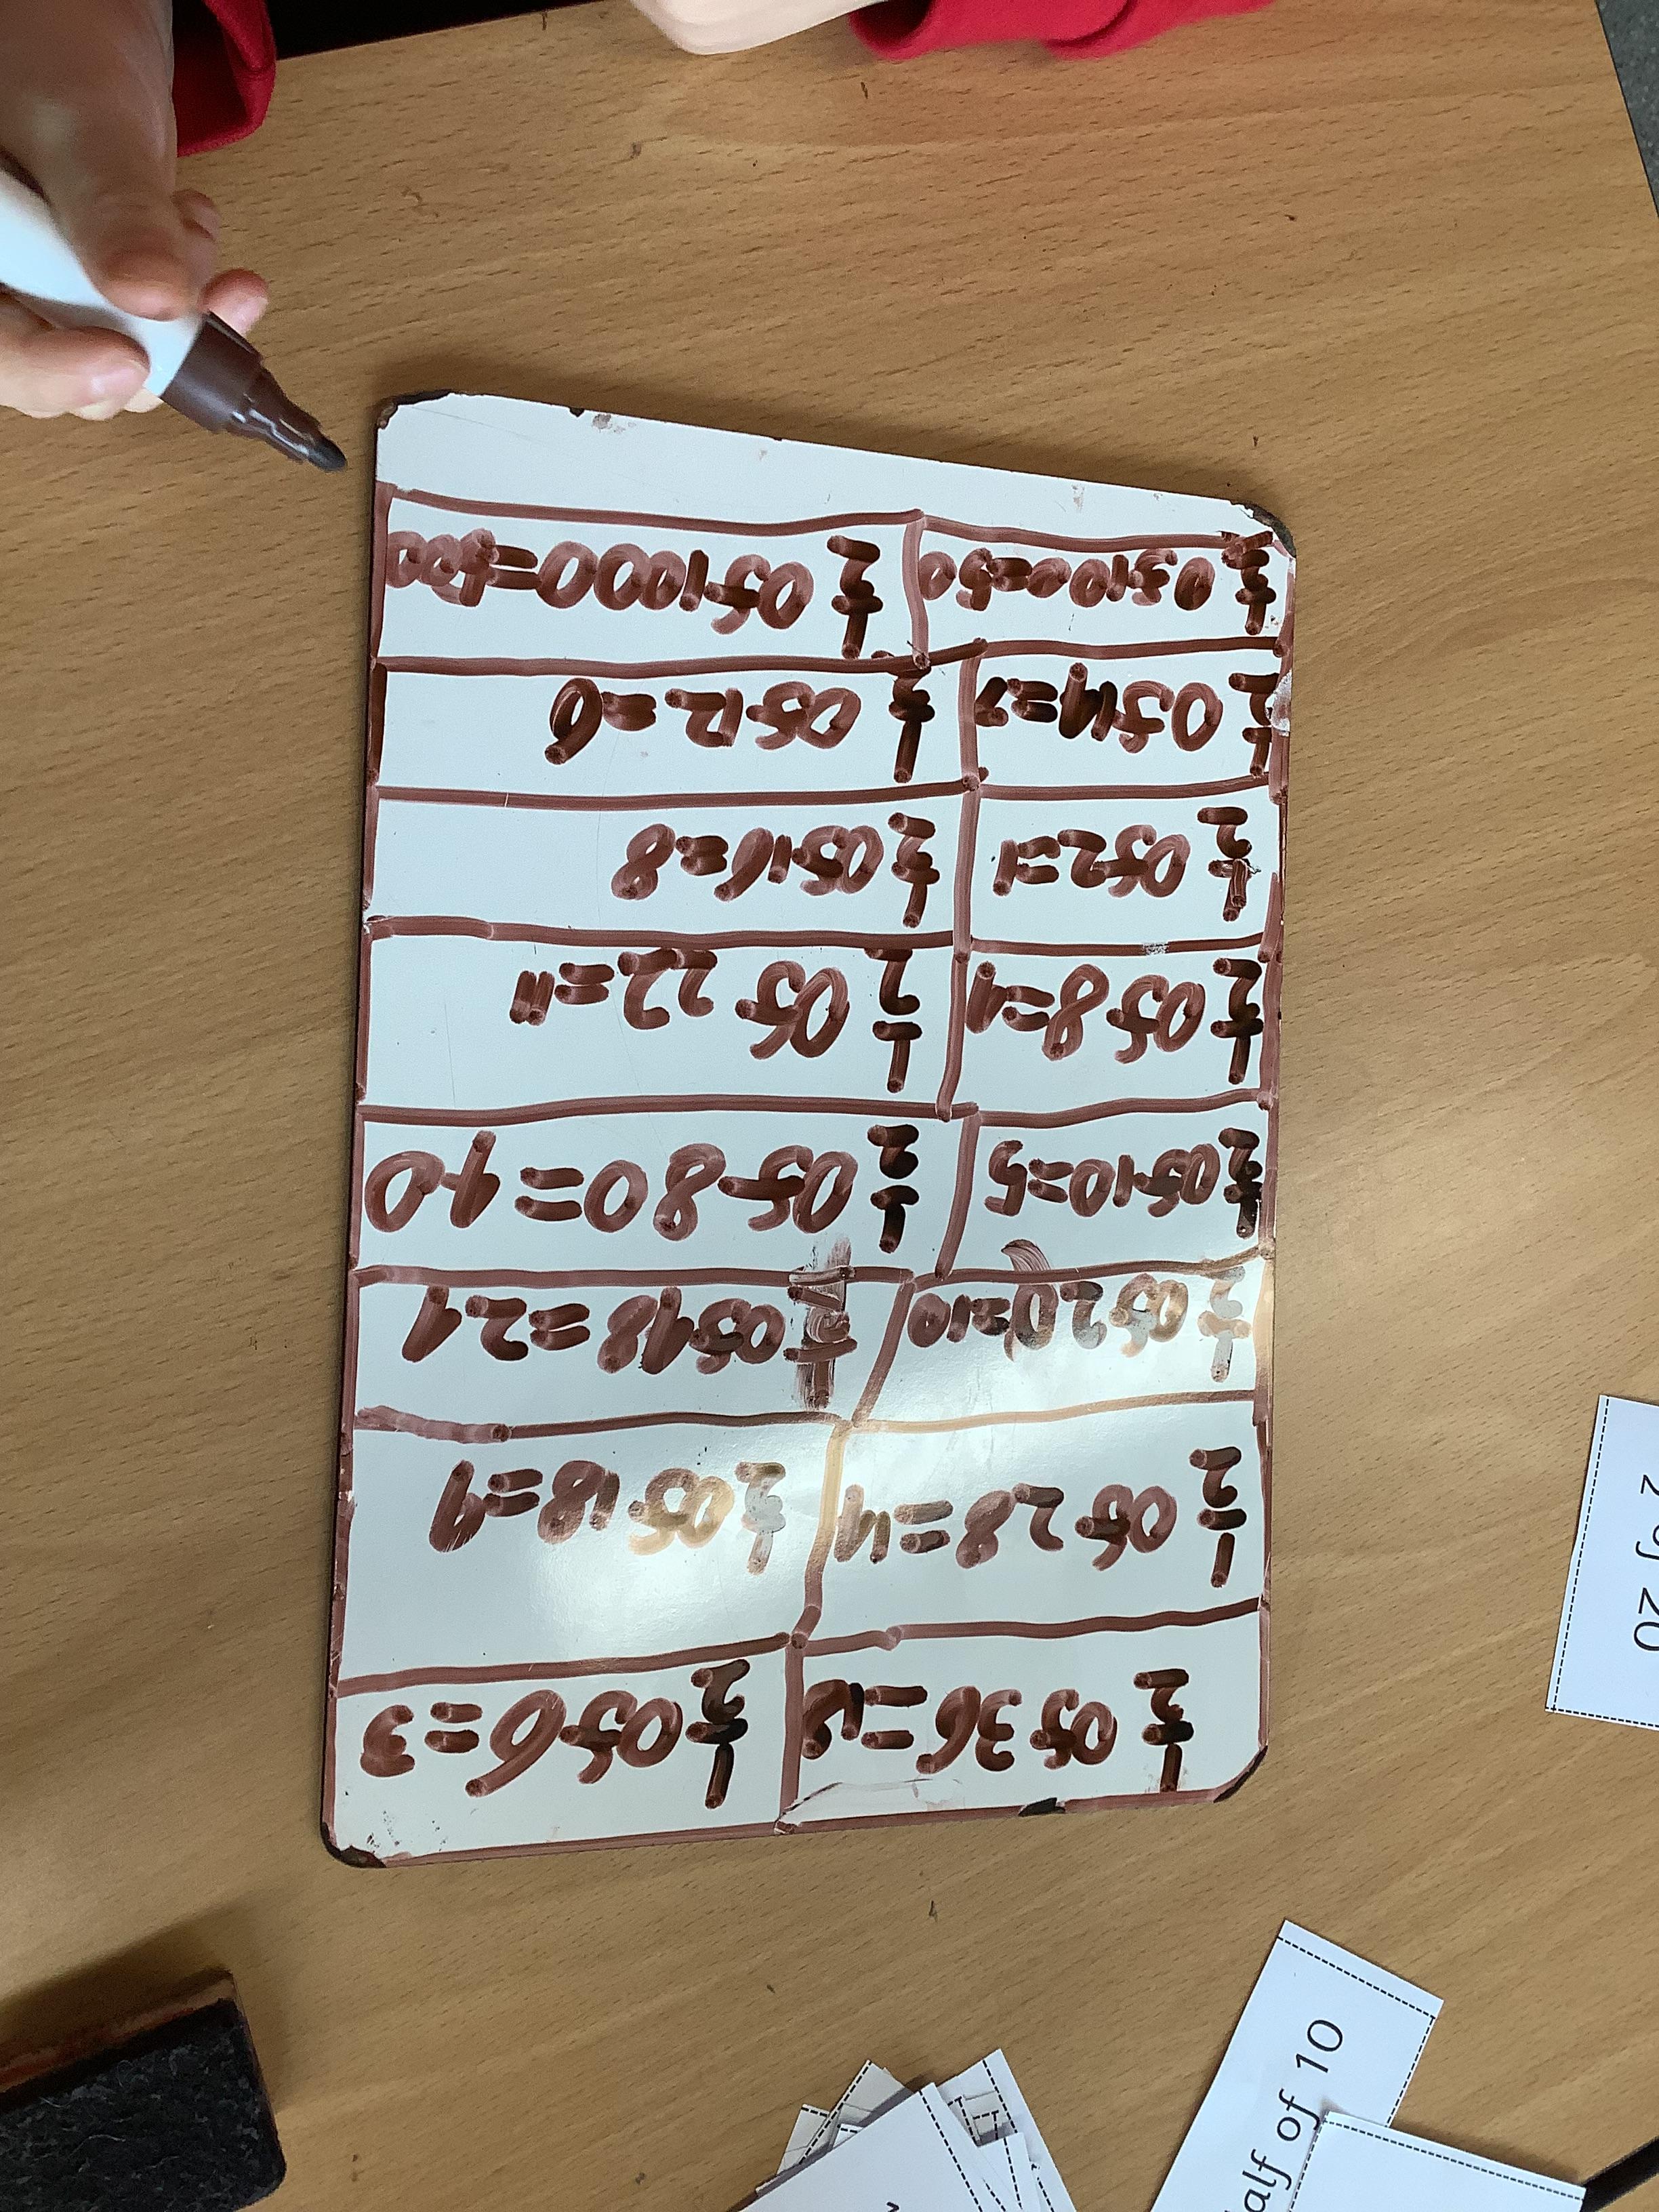 1/2 of 36=18
1/2 of 6=3
1/2 of 28=14
1/2 of 18=9
1/2 of 20=10
1/2 of 48=24
1/2 of 10=5
1/2 of 80=40
1/2 of 8=4
1/2 of 22=11
1/2 of 2=1
1/2 of 16=8
1/2 of 14=7
1/2 of 12=6
1/2 of 100=50
1/2 of 1000=500
2 of 20
alf of 10